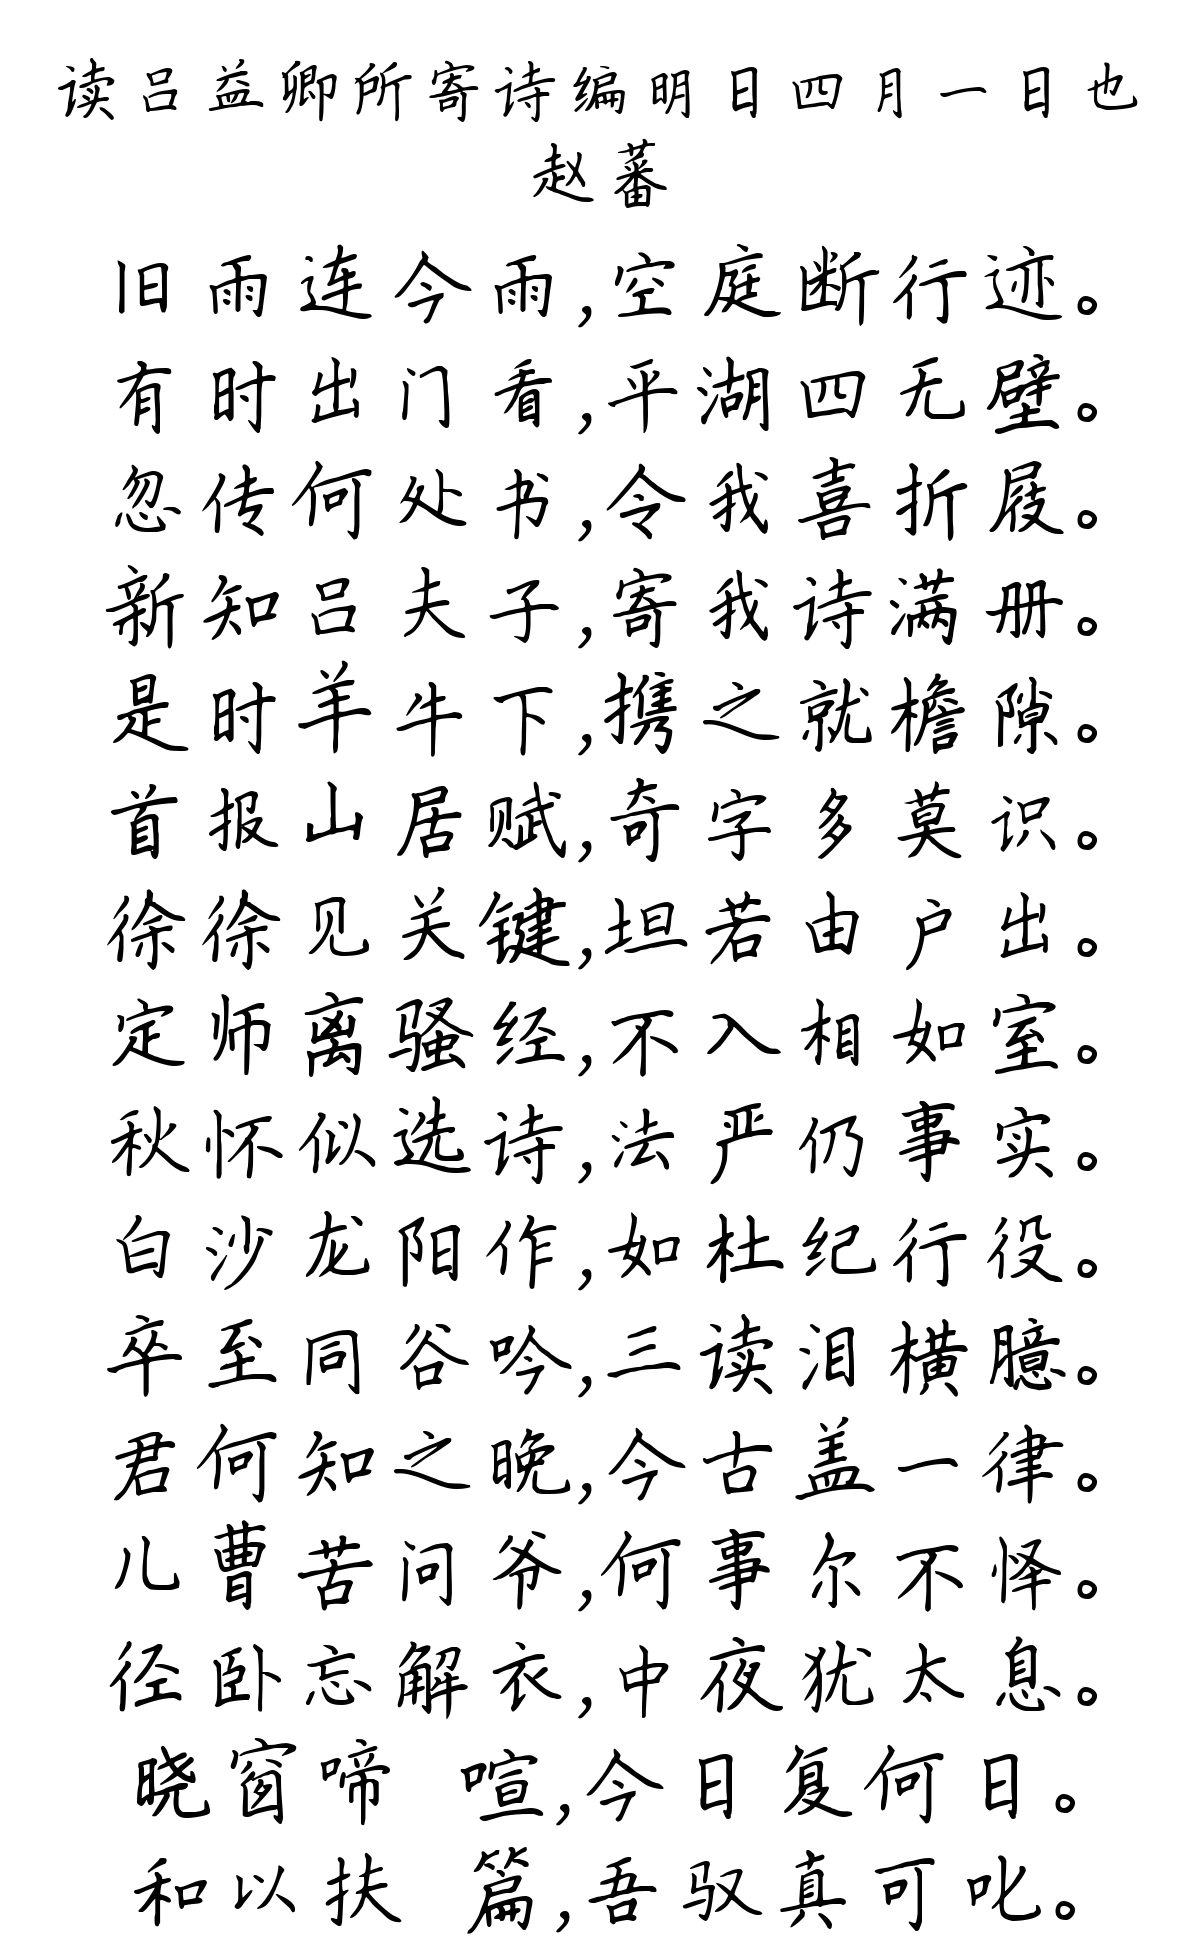 读吕益卿所寄诗编明日四月一日也
赵蕃
旧雨连今雨,空庭断行迹。
有时出门看,平湖四无壁。
忽传何处书,令我喜折屐。
新知吕夫子,寄我诗满册。
是时羊牛下,携之就檐隙。
首报山居赋,奇字多莫识。
徐徐见关键,坦若由户出。
定师离骚经,不入相如室。
秋怀似选诗,法严仍事实。
白沙龙阳作,如杜纪行役。
卒至同谷吟,三读泪横臆。
君何知之晚,今古盖一律。
儿曹苦问爷,何事尔不怿。
径卧忘解衣,中夜犹太息。
晓窗啼 喧,今日复何日。
和以扶 篇,吾驭真可叱。